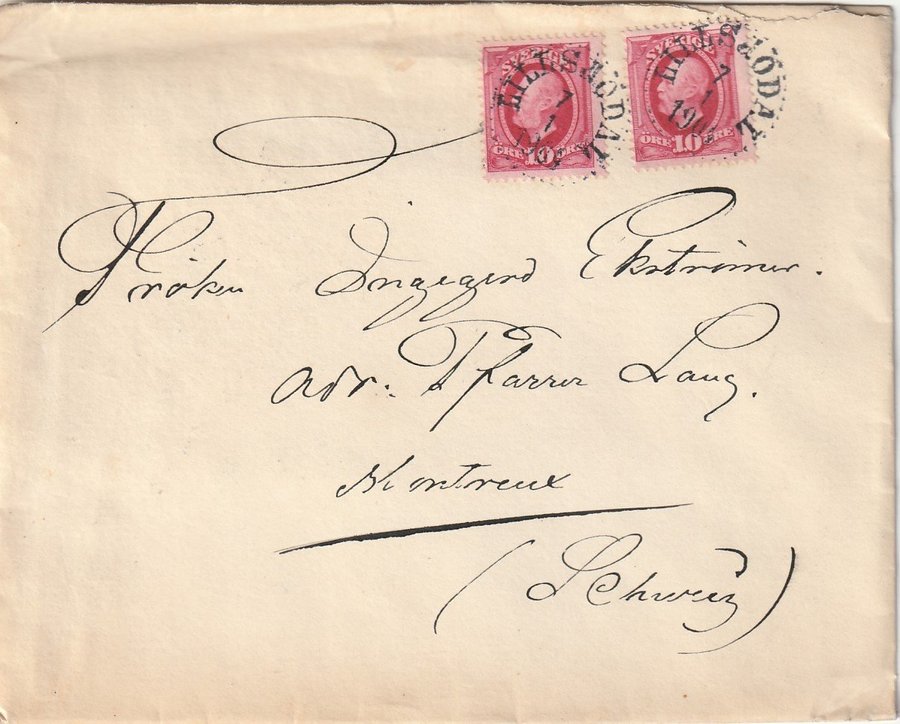 SVERIGE SVERIGE
LILLSJÖDAL LILLSJÖDAL
7 7
1 1
ÖRE 10 ÖRE ÖRE 10 ÖRE
Fröken Ingegerd Ekströmer.
adr: Pfarrer Lang.
Montreux
(Schweiz)